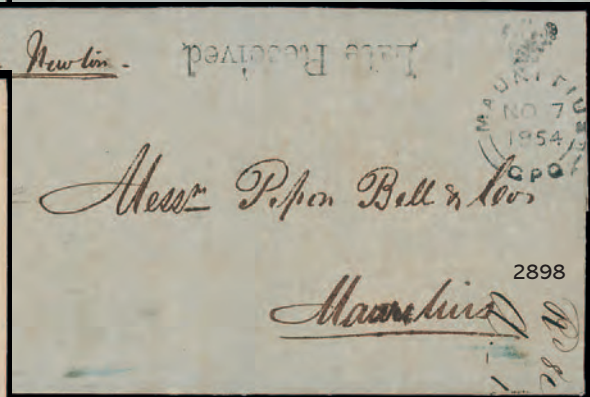 Newton.
Late Received
MAURITIUS
NO 7
1854
GPO
Messrs Pipon Bell & Co
Mauritius
2898